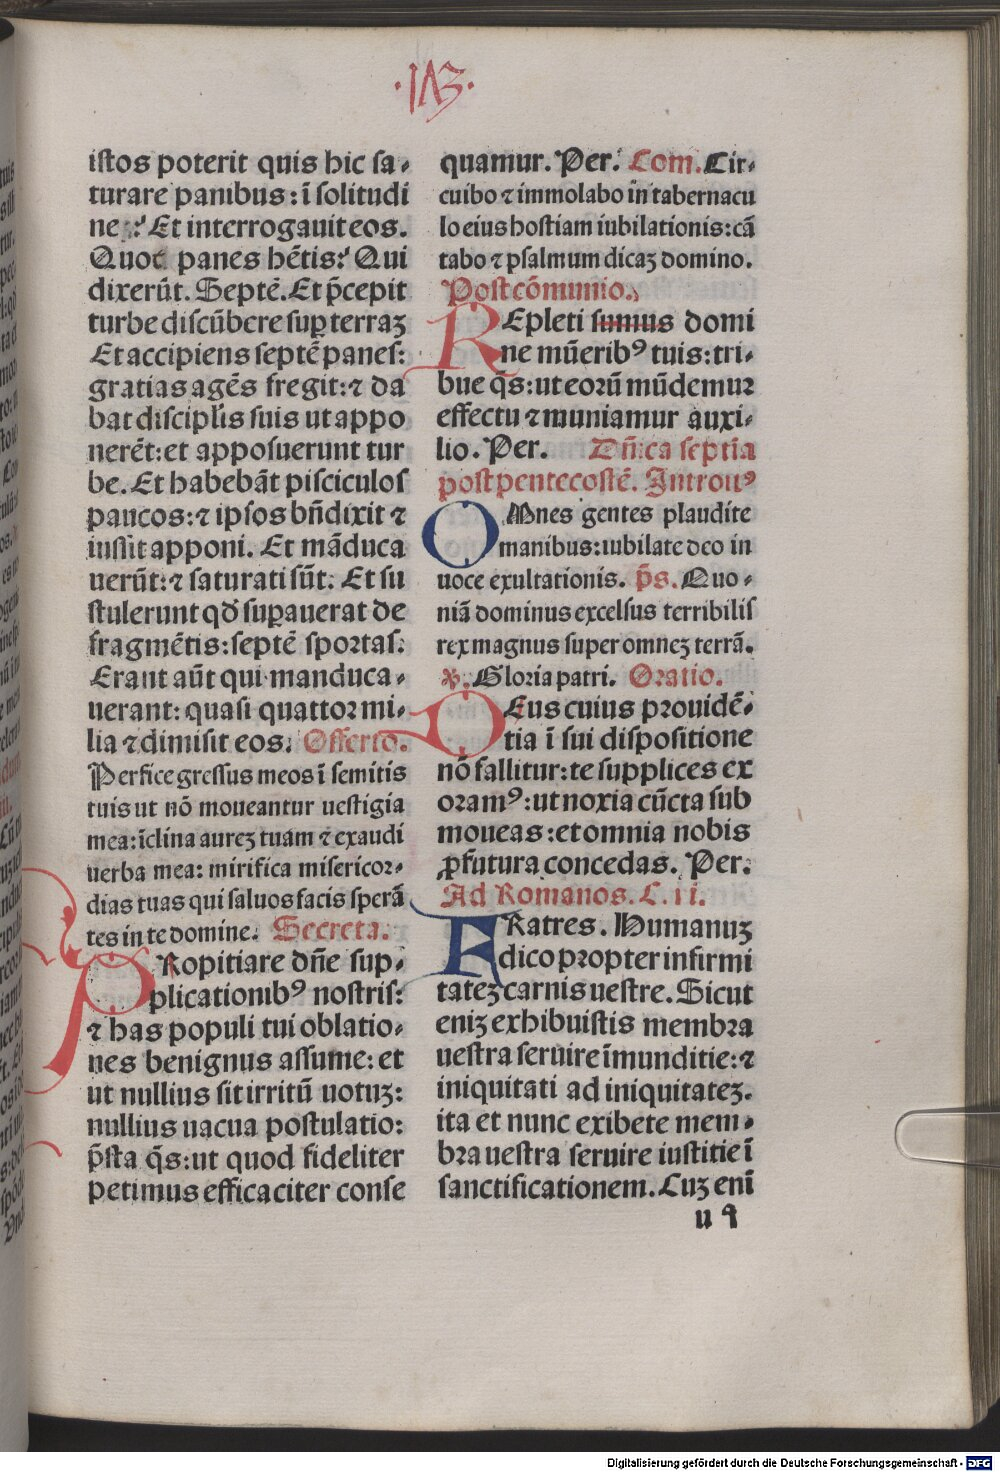 ·1Λ3·
istos poterit quis hic sa-
turare panibus: ī solitudi
ne: Et interrogauit eos.
Quot panes hētis: Qui
dixerūt. Septē. Et p̄cepit
turbe discūbere sup̱ terraꝫ
Et accipiens septē panes:
gratias agēs fregit: ⁊ da
bat discipl̄is suis ut appo
nerēt: et apposuerunt tur
be. Et habebāt pisciculos
paucos: ⁊ ipsos bn̄dixit ⁊
iussit apponi. Et māduca
uerūt: ⁊ saturati sūt. Et su
stulerunt qd̄ sup̱auerat de
fragmētis: septē sportas.
Erant aūt qui manduca-
uerant: quasi quattor mi-
lia ⁊ dimisit eos. Offerto.
Perfice gressus meos ī semitis
tuis ut nō moueantur uestigia
mea: īclina aureꝫ tuam ⁊ exaudi
uerba mea: mirifica misericor-
dias tuas qui saluos facis sperā
tes in te domine. Secreta.
PRopitiare dn̄e sup-
plicationibꝰ nostris:
⁊ has populi tui oblatio-
nes benignus assume: et
ut nullius sit irritū uotuꝫ:
nullius uacua postulatio:
p̄sta q̄s: ut quod fideliter
petimus efficaciter conse
quamur. Per. Com. Cir-
cuibo ⁊ immolabo in tabernacu
lo eius hostiam iubilationis: cā
tabo ⁊ psalmum dicaꝫ domino.
Postcōmunio.
REpleti sumus domi
ne mūeribꝰ tuis: tri-
bue q̄s: ut eorū mūdemur
effectu ⁊ muniamur auxi-
lio. Per. Dn̄ica septīa
post pentecostē. Introitꝰ
OMnes gentes plaudite
manibus: iubilate deo in
uoce exultationis. p̄s. Quo-
niā dominus excelsus terribilis
rex magnus super omneꝫ terrā.
℣. Gloria patri. Oratio.
DEus cuius prouidē-
tia ī sui dispositione
nō fallitur: te supplices ex
oramꝰ: ut noxia cūcta sub
moueas: et omnia nobis
ꝓfutura concedas. Per.
Ad Romanos. C. vi.
FRatres. Humanuꝫ
dico propter infirmi
tateꝫ carnis uestre. Sicut
eniꝫ exhibuistis membra
uestra seruire īmunditie: ⁊
iniquitati ad iniquitateꝫ.
ita et nunc exibete mem-
bra uestra seruire iustitie ī
sanctificationem. Cuꝫ enī
u ꝯ
Digitalisierung gefördert durch die Deutsche Forschungsgemeinschaft - DFG